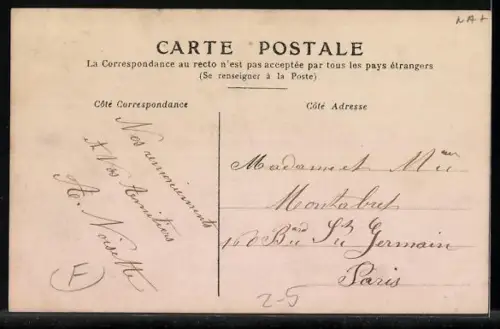 CARTE POSTALE
La Correspondance au recto n'est pas acceptée par tous les pays étrangers
(Se renseigner à la Poste)
Côté Correspondance
Nos remerciements
& Nos Amitiés
A. Noisette
F
Côté Adresse
Madame et
Montabret
160 Bard St Germain
Paris
2-5